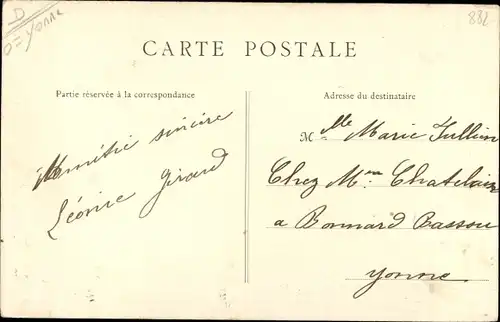 D
D= Yonne
882
CARTE POSTALE
Partie réservée à la correspondance
Adresse du destinataire
Amitié sincère
Léonie Girard
Mlle Marie Jullien
Chez Mme Chatelain
a Bonnard Bassou
Yonne